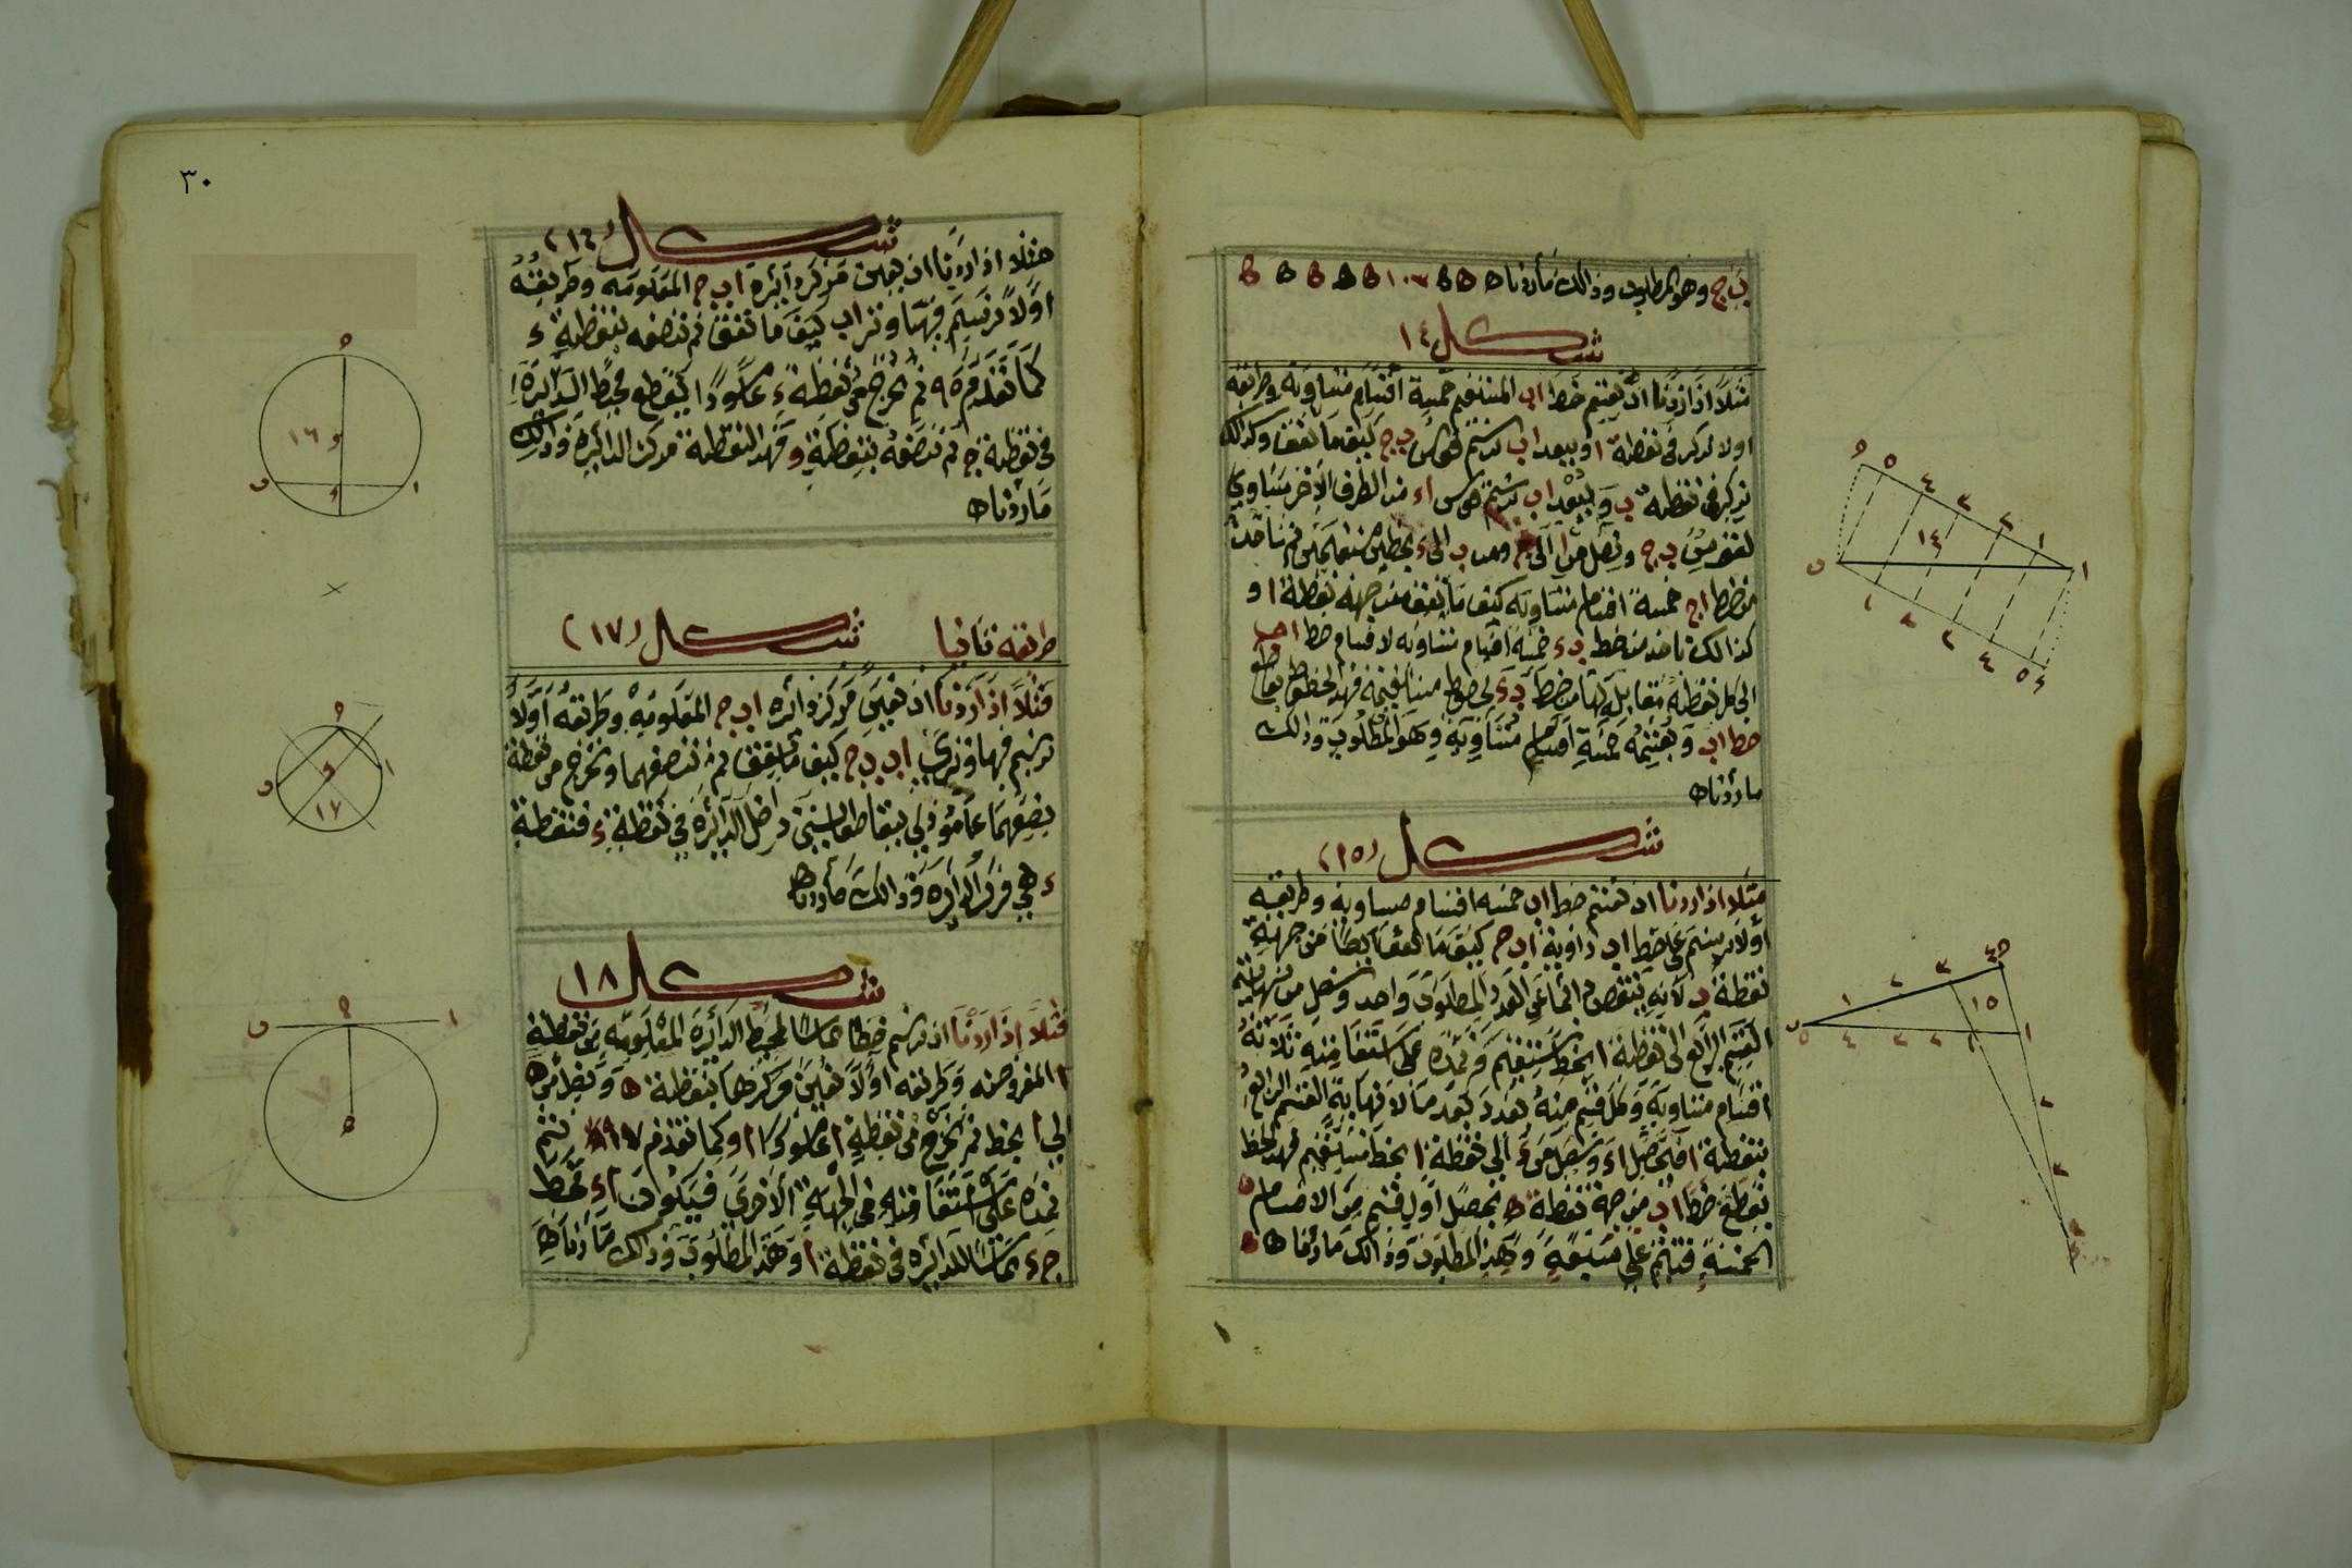 ب ج وهو المطلوب وذالك ما أردناه
شكل ١٤
مثلا اذا اردنا ان نقسم خط اب المستقيم خمسة أقسام متساوية وطريقه
اولا نركز في نقطة ا وببعد اب نرسم قوس ب ج كيف ما اتفق وكذالك
نركز في نقطة ب وببعد اب نرسم قوس اء من الطرف الآخر يساوي
لقوس ب ج ونصل من ا الى ج ومن ب الى ء بخطين مستقيمين ثم نأخذ
من خط اج خمسة اقسام متساوية كيف ما اتفق من جهة نقطة ا و
كذالك نأخذ من خط ب ء خمسة اقسام متساويه لاقسام خط اج
الى كل نقطة مقابل لها من خط ب ء بخطوط مستقيمة فهذه الخطوط تقاطع
خط اب وتقسمه خمسة اقسام متساوية وهو المطلوب وذالك
ما أردناه
شكل (١٥)
مثلا اذا اردنا ان نقسم خط اب خمسه اقسام مساوية وطريقه
أولا نرسم على خط اب زاوية اب ج كيف ما اتفق
نقطة ب لانه ينقص دائما عن العدد المطلوب واحد ونصل من نهاية
القسم الرابع الى نقطة ا بخط مستقيم ونمده على استقامته ثلاثة
اقسام متساوية وكل قسم منه بقدر بعد نهاية القسم الرابع
بنقطة ا ونصل من ء الى نقطة بخط مستقيم فهذا الخط
يقطع خط اب من جهة نقطة يحصل اول قسم من الاقسام
الخمسة وهذا المطلوب وذالك ما أردناه
٣٠
شكل (١٦)
مثلا اذا اردنا ان نعين مركز دائرة اب ج المعلومه وطريقه
اولا نرسم فيها وتر اب كيف ما اتفق ثم ننصفه بنقطة ء
كما تقدم مره ٩ ثم نخرج من نقطة ء عامودا يقطع محيط الدائرة
في نقطة ج ثم ننصفه بنقطة و فهذه النقطة مركز الدائرة وذالك
ما أردناه
طريقه ثانيا شكل (١٧)
مثلا اذا اردنا ان نعين مركز دائره اب ج المعلومه وطريقه أولا
نرسم فيها وتري اب ب ج كيف ما اتفق ثم ننصفهما ونخرج من نقطة
نصفهما عامودين يتقاطعا داخل الدائرة في نقطة ء فنقطة
ء هي مركز الدائره وذالك ما أردناه
شكل ١٨
مثلا اذا اردنا ان نرسم خطا مماسا لمحيط الدائرة المعلومه من نقطة
ا المفروضه وطريقه أولا نعين مركزها بنقطة ه ونصل من ه
الى ا بخط ثم نخرج من نقطة ا عامودا كما تقدم
نمده على استقامته في الجهة الاخرى فيكون اء خط
ج ء مماسا للدائره في نقطة ا وهذا المطلوب وذالك ما اردناه
١٤
١٥
١٦
١٧